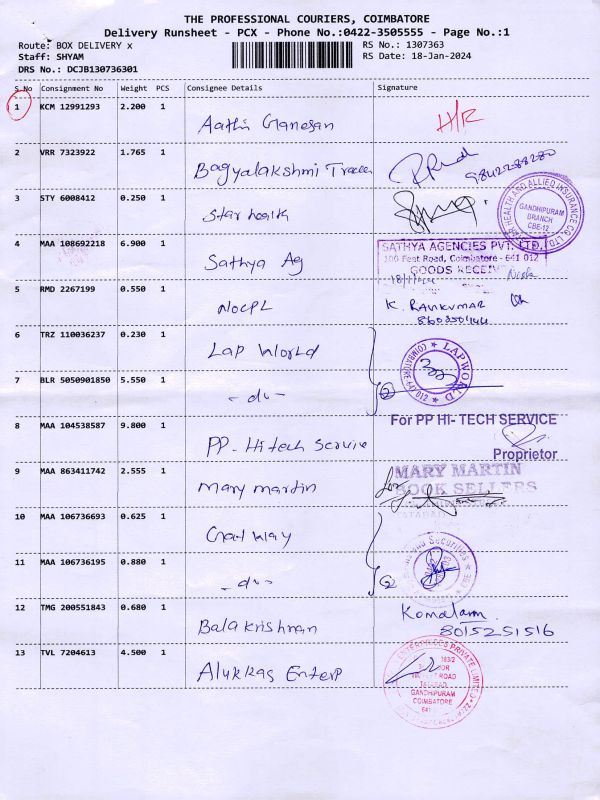 THE PROFESSIONAL COURIERS, COIMBATORE
Delivery Runsheet - PCX - Phone No.:0422-3505555 - Page No.:1
Route: BOX DELIVERY x
RS No.: 1307363
Staff: SHYAM
RS Date: 18-Jan-2024
DRS No.: DCJB130736301
S No Consignment No Weight PCS Consignee Details Signature
1 KCM 12991293 2.200 1
Aathi Ganesan
2 VRR 7323922 1.765 1
Bagyalakshmi
9842288280
3 STY 6008412 0.250 1
Star health
HEALTH AND ALLIED INSURANCE CO. LTD.
GANDHIPURAM
BRANCH
CBE-12
4 MAA 108692218 6.900 1
Sathya Ag
SATHYA AGENCIES PVT. LTD.
100 Feet Road, Coimbatore - 641 012
GOODS
5 RMD 2267199 0.550 1
NOCPL
K. RAVIKUMAR
6 TRZ 110036237 0.230 1
Lap World
LAP WORLD
COIMBATORE
7 BLR 5050901850 5.550 1
- do -
8 MAA 104538587 9.800 1
PP - Hitech Service
For PP HI- TECH SERVICE
Proprietor
9 MAA 863411742 2.555 1
Mary martin
MARY MARTIN
BOOK SELLERS
10 MAA 106736693 0.625 1
11 MAA 106736195 0.880 1
- do -
12 TMG 200551843 0.680 1
Bala krishnan
8015251516
13 TVL 7204613 4.500 1
Alukkas Enterp
ENTERPRISES PRIVATE LIMITED
GANDHIPURAM
COIMBATORE